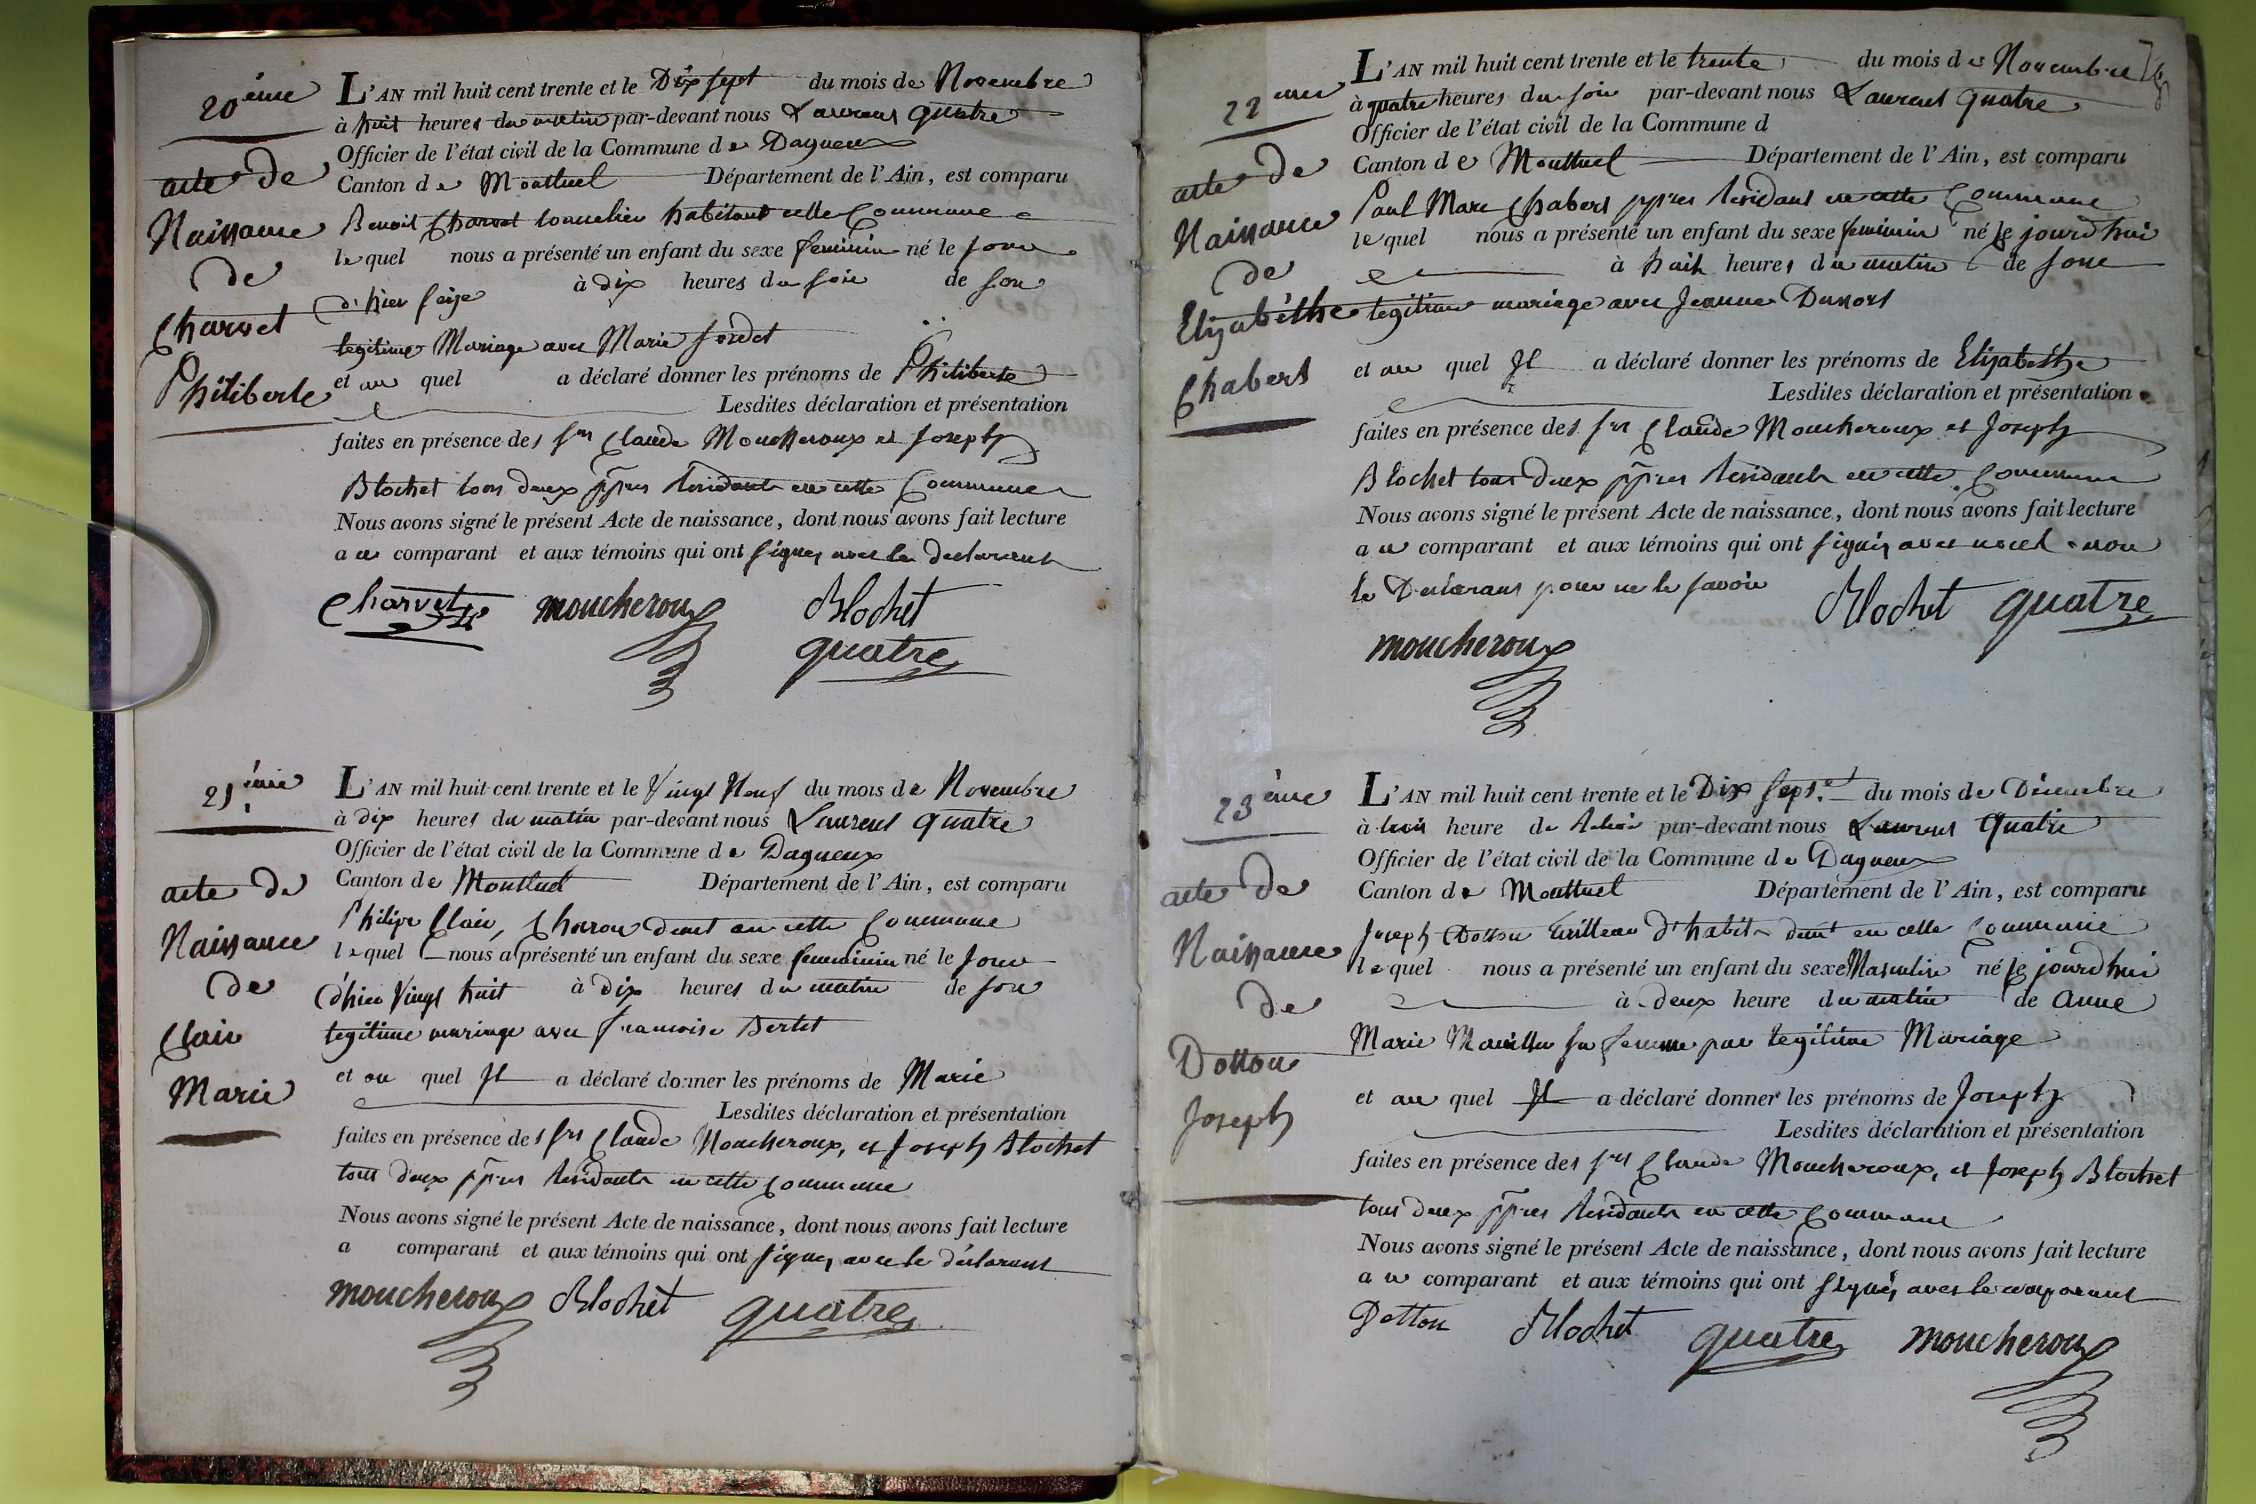 20ème
acte de
Naissance
de
Charvet
Philiberte
L'AN mil huit cent trente et le Dix sept du mois de Novembre
à huit heures du matin par-devant nous Laurent quatre
Officier de l'état civil de la Commune de Dagneux
Canton de Montluel Département de l'Ain, est comparu
Benoit Charvet tonnelier habitant cette Commune
lequel nous a présenté un enfant du sexe feminin né le jour
d'hier seize à dix heures du soir de son
legitime Mariage avec Marie
et au quel a déclaré donner les prénoms de Philiberte
Lesdites déclaration et présentation
faites en présence des srs Claude Moucheroux et Joseph
Blochet tous deux ppres residants en cette Commune
Nous avons signé le présent Acte de naissance, dont nous avons fait lecture
a ce comparant et aux témoins qui ont signés avec le declarant
Charvet moucheroux Blochet
quatre
21ème
acte de
Naissance
de
Clair
Marie
L'AN mil huit cent trente et le Vingt Neuf du mois de Novembre
à dix heures du matin par-devant nous Laurent quatre
Officier de l'état civil de la Commune de Dagneux
Canton de Montluel Département de l'Ain, est comparu
Philipe Clair, Charron demt en cette Commune
lequel nous a présenté un enfant du sexe feminin né le jour
d'hier Vingt huit à dix heures du matin de son
legitime mariage avec francoise Bertet
et au quel Il a déclaré donner les prénoms de Marie
Lesdites déclaration et présentation
faites en présence des srs Claude Moucheroux, et Joseph Blochet
tous deux ppres residants en cette Commune
Nous avons signé le présent Acte de naissance, dont nous avons fait lecture
a comparant et aux témoins qui ont signés avec le déclarant
moucheroux Blochet quatre
22eme
acte de
Naissance
de
Elizabéthe
Chabert
L'AN mil huit cent trente et le trente du mois de Novembre
à quatre heures du soir par-devant nous Laurent quatre
Officier de l'état civil de la Commune d
Canton de Montluel Département de l'Ain, est comparu
Paul Marc Chabert ppres residant en cette Commune
lequel nous a présenté un enfant du sexe feminin né le jourd'hui
à huit heures du matin de son
legitime mariage avec Jeanne
et au quel Il a déclaré donner les prénoms de Elizabéthe
Lesdites déclaration et présentation
faites en présence des srs Claude Moucheroux et Joseph
Blochet tous deux ppres residants en cette Commune
Nous avons signé le présent Acte de naissance, dont nous avons fait lecture
a ce comparant et aux témoins qui ont signés avec non
le Declarant pour ne le savoir
Blochet quatre
moucheroux
23ème
acte de
Naissance
de
Dotton
Joseph
L'AN mil huit cent trente et le Dix sept du mois de Décembre
à heure de par-devant nous Laurent quatre
Officier de l'état civil de la Commune de Dagneux
Canton de Montluel Département de l'Ain, est comparu
Joseph Dotton tailleur d'habit demt en cette Commune
lequel nous a présenté un enfant du sexe Masculin né le jourd'hui
à deux heure du matin de anne
Marie sa femme par legitime Mariage
et au quel Il a déclaré donner les prénoms de Joseph
Lesdites déclaration et présentation
faites en présence des srs Claude Moucheroux, et Joseph Blochet
tous deux ppres residants en cette Commune
Nous avons signé le présent Acte de naissance, dont nous avons fait lecture
a ce comparant et aux témoins qui ont signés avec le comparant
Dotton Blochet quatre moucheroux